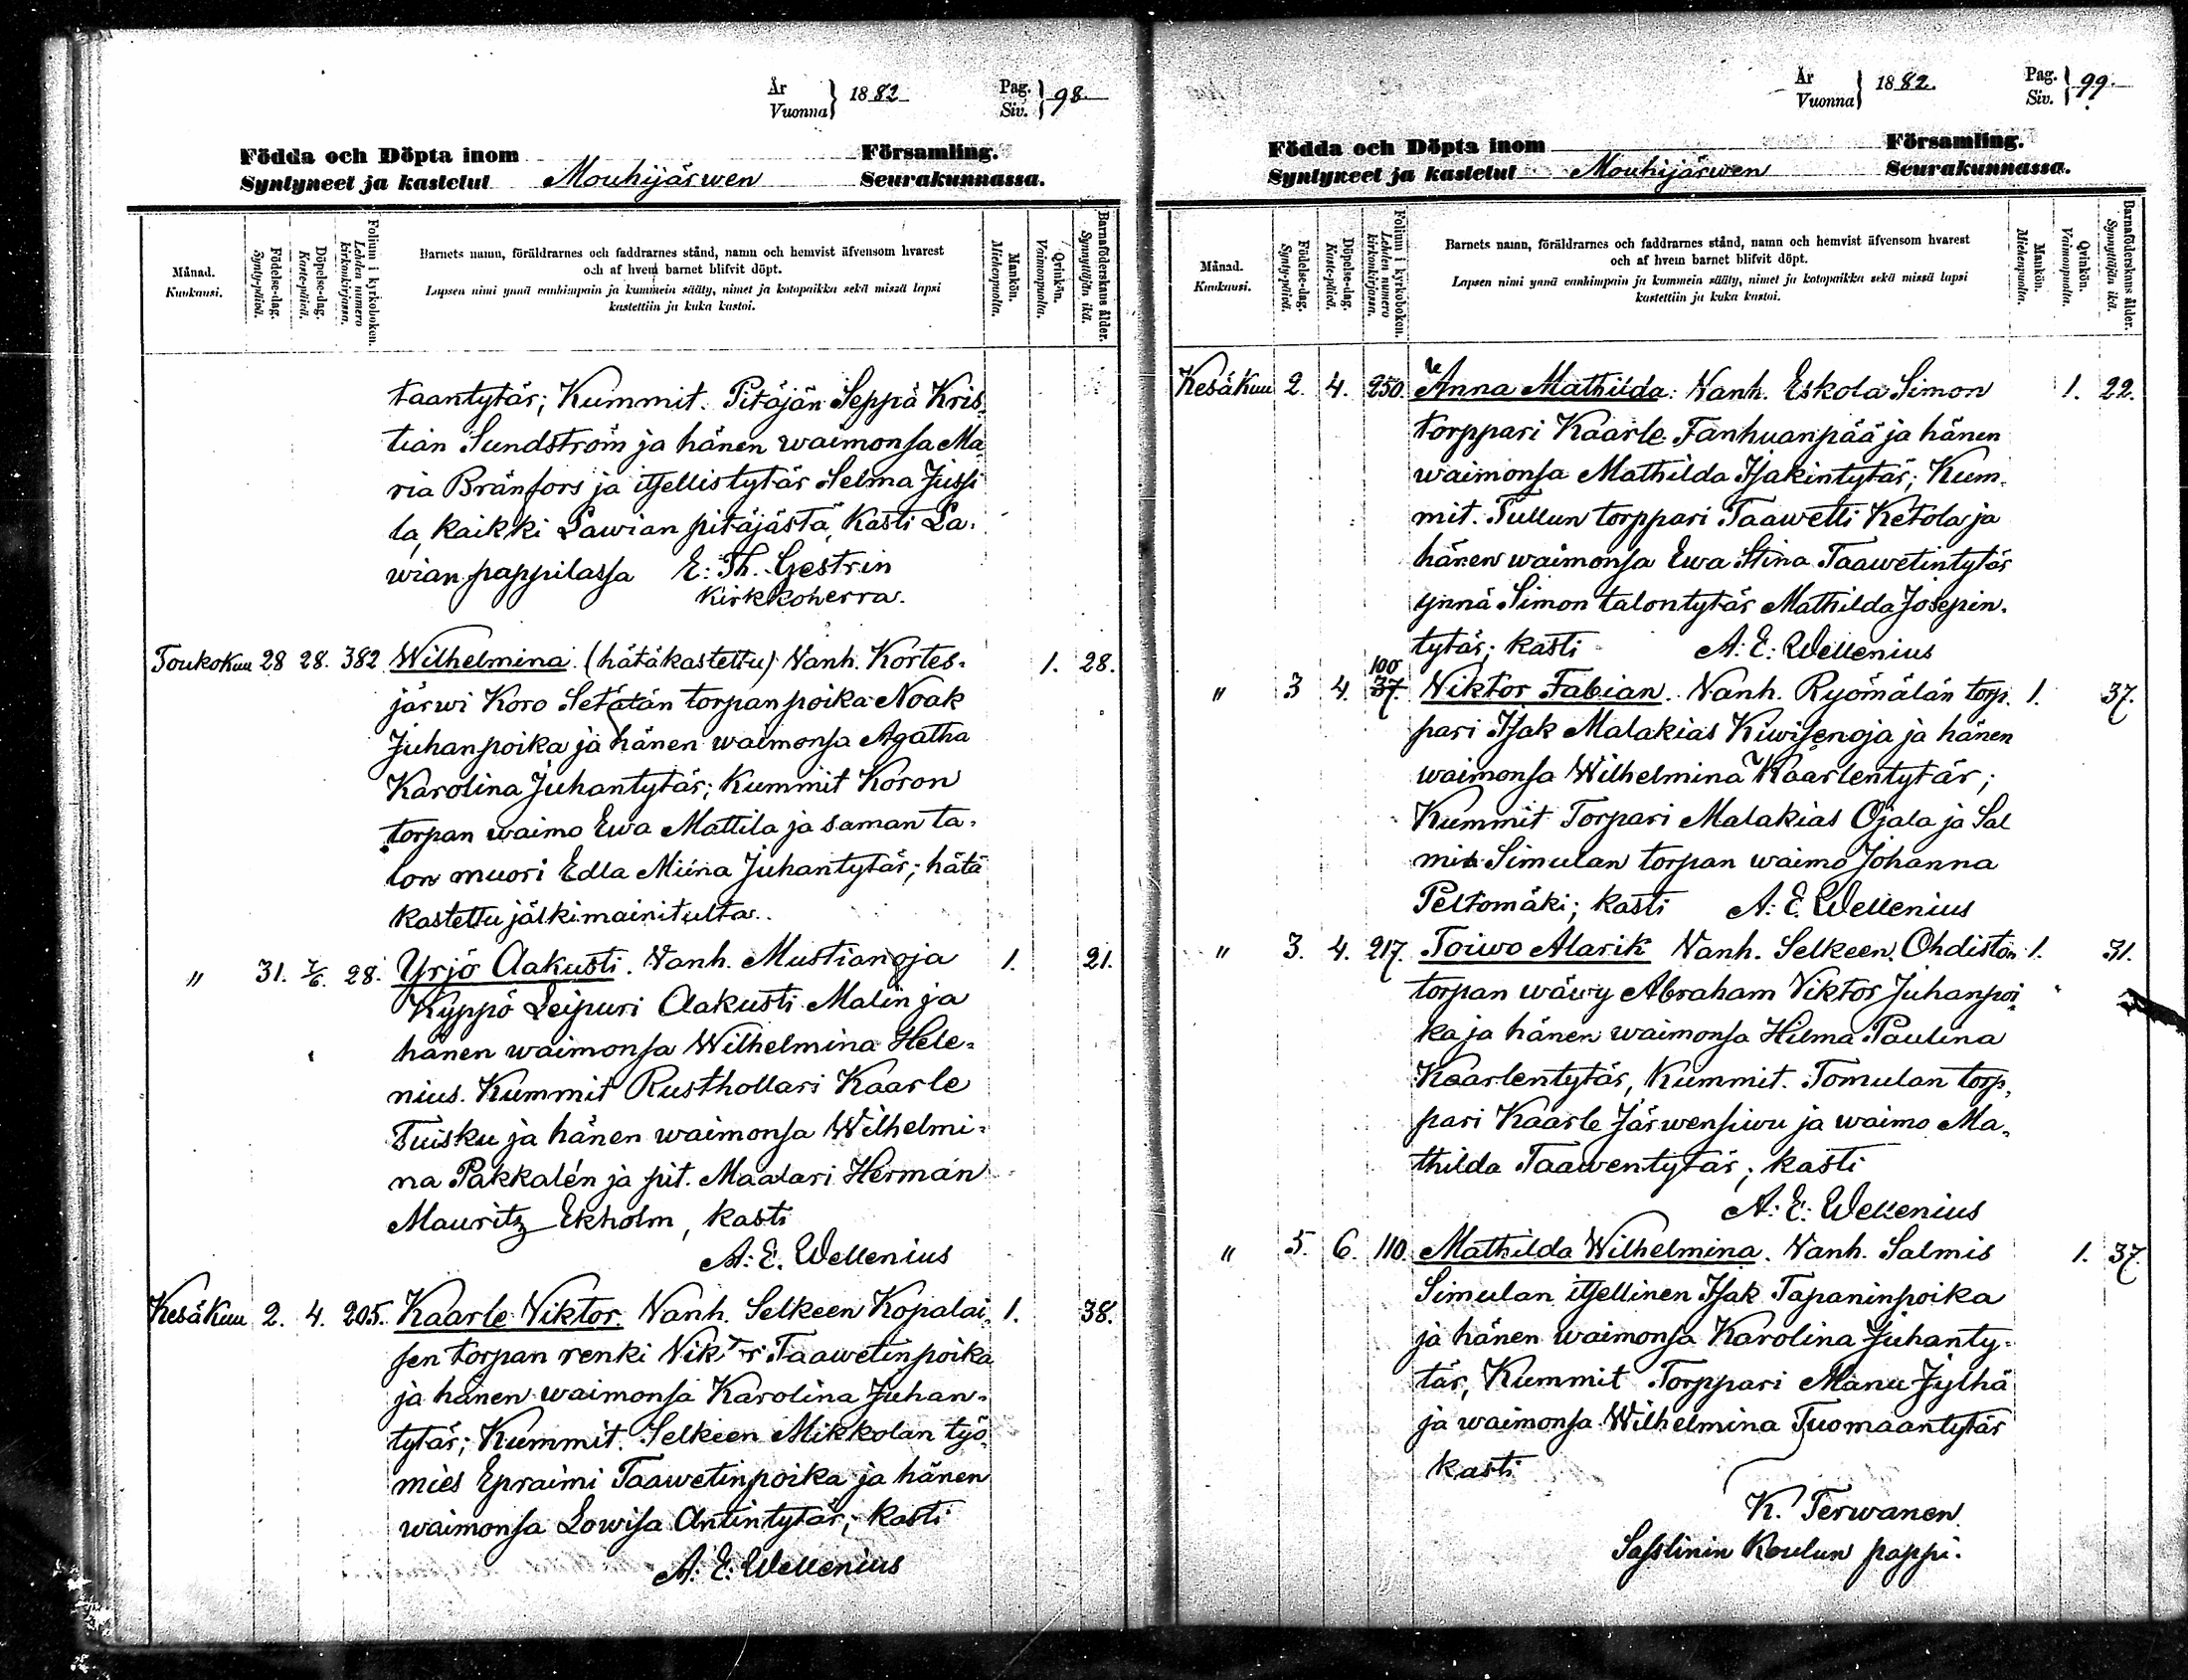 År
Vuonna } 1882
Pag.
Siv. } 98.
Födda och Döpta inom Församling.
Syntyneet ja kastetut Mouhijärwen Seurakunnassa.
Månad.
Kuukausi.
Födelse-dag.
Synty-päivä.
Döpelse-dag.
Kaste-päivä.
Folium i kyrkoboken.
Lehden numero
kirkonkirjassa.
Barnets namn, föräldrarnes och faddrarnes stånd, namn och hemvist äfvensom hvarest
och af hvem barnet blifvit döpt.
Lapsen nimi ynnä vanhimpain ja kummein sääty, nimet ja kotopaikka sekä missä lapsi
kastettiin ja kuka kastoi.
Mankön.
Miehenpuolia.
Qvinkön.
Vaimonpuolia.
Barnaföderskans ålder.
Synnyttäjän ikä.
taantytär; Kummit. Pitäjän Seppä Kris-
tian Sundström ja hänen waimonsa Ma
ria Bränfors ja itsellistytär Selma Jussi
la, kaikki Lawian pitäjästä, Kasti La-
wian pappilassa E: Th. Gestrin
Kirkkoherra.
Toukokuu 28 28. 382 Wilhelmina. (hätäkastettu) Wanh. Kortes- 1. 28.
järwi Koro Setätän torpan poika Noak
Juhanpoika ja hänen waimonsa Agatha
Karolina Juhantytär; Kummit Koron
torpan waimo Ewa Mattila ja saman ta-
lon muori Edla Miina Juhantytär; hätä
kastettu jälkimainitulta.
" 31. 7/6. 28. Yrjö Aakusti. Wanh. Mustianoja 1. 21.
Kyppö Leipuri Aakusti Malin ja
hänen waimonsa Wilhelmina Hele-
nius. Kummit Rusthollari Kaarle
Tuisku ja hänen waimonsa Wilhelmi-
na Pakkalén ja pit. Maalari Herman
Mauritz Ekholm, kasti
A: E. Wellenius
Kesäkuu 2. 4. 205. Kaarle Viktor. Wanh. Selkeen Kopalai- 1. 38.
sen torpan renki Viktor Taawetinpoika
ja hänen waimonsa Karolina Juhan-
tytär; Kummit. Selkeen Mikkolan työ-
mies Epraimi Taawetinpoika ja hänen
waimonsa Lowisa Antintytär; kasti
A: E: Wellenius
År
Vuonna } 1882.
Pag.
Siv. } 99.
Födda och Döpta inom Församling.
Syntyneet ja kastetut Mouhijärwen Seurakunnassa.
Månad.
Kuukausi.
Födelse-dag.
Synty-päivä.
Döpelse-dag.
Kaste-päivä.
Folium i kyrkoboken.
Lehden numero
kirkonkirjassa.
Barnets namn, föräldrarnes och faddrarnes stånd, namn och hemvist äfvensom hvarest
och af hvem barnet blifvit döpt.
Lapsen nimi ynnä vanhimpain ja kummein sääty, nimet ja kotopaikka sekä missä lapsi
kastettiin ja kuka kastoi.
Mankön.
Miehenpuolia.
Qvinkön.
Vaimonpuolia.
Barnaföderskans ålder.
Synnyttäjän ikä.
Kesäkuu 2. 4. 250. Anna Mathilda. Wanh. Eskola Simon 1. 22.
torppari Kaarle Tanhuanpää ja hänen
waimonsa Mathilda Isakintytär; Kum-
mit. Tullun torppari Taawetti Ketola ja
hänen waimonsa Ewa Stina Taawetintytär
ynnä Simon talontytär Mathilda Josepin-
tytär; kasti A: E: Wellenius
100
" 3 4. 37. Viktor Fabian. Wanh. Ryömälän torp- 1. 37.
pari Isak Malakias Kiwisenoja ja hänen
waimonsa Wilhelmina Kaarlentytär;
Kummit Torpari Malakias Ojala ja Sal
mis Simulan torpan waimo Johanna
Peltomäki; kasti A: E. Wellenius
" 3. 4. 217. Toiwo Alarik Wanh. Selkeen Ohdistön 1. 31.
torpan wäwy Abraham Viktor Juhanpoi
ka ja hänen waimonsa Hilma Paulina
Kaarlentytär, Kummit. Tomulan torp-
pari Kaarle Järwensiwu ja waimo Ma-
thilda Taawentytär; kasti
A: E: Wellenius
" 5. 6. 110. Mathilda Wilhelmina. Wanh. Salmis 1. 37.
Simulan itsellinen Isak Tapaninpoika
ja hänen waimonsa Karolina Juhanty-
tär, Kummit Torppari Manu Jylhä
ja waimonsa Wilhelmina Tuomaantytär
kasti
K. Terwanen
Sasslinin Koulun pappi.